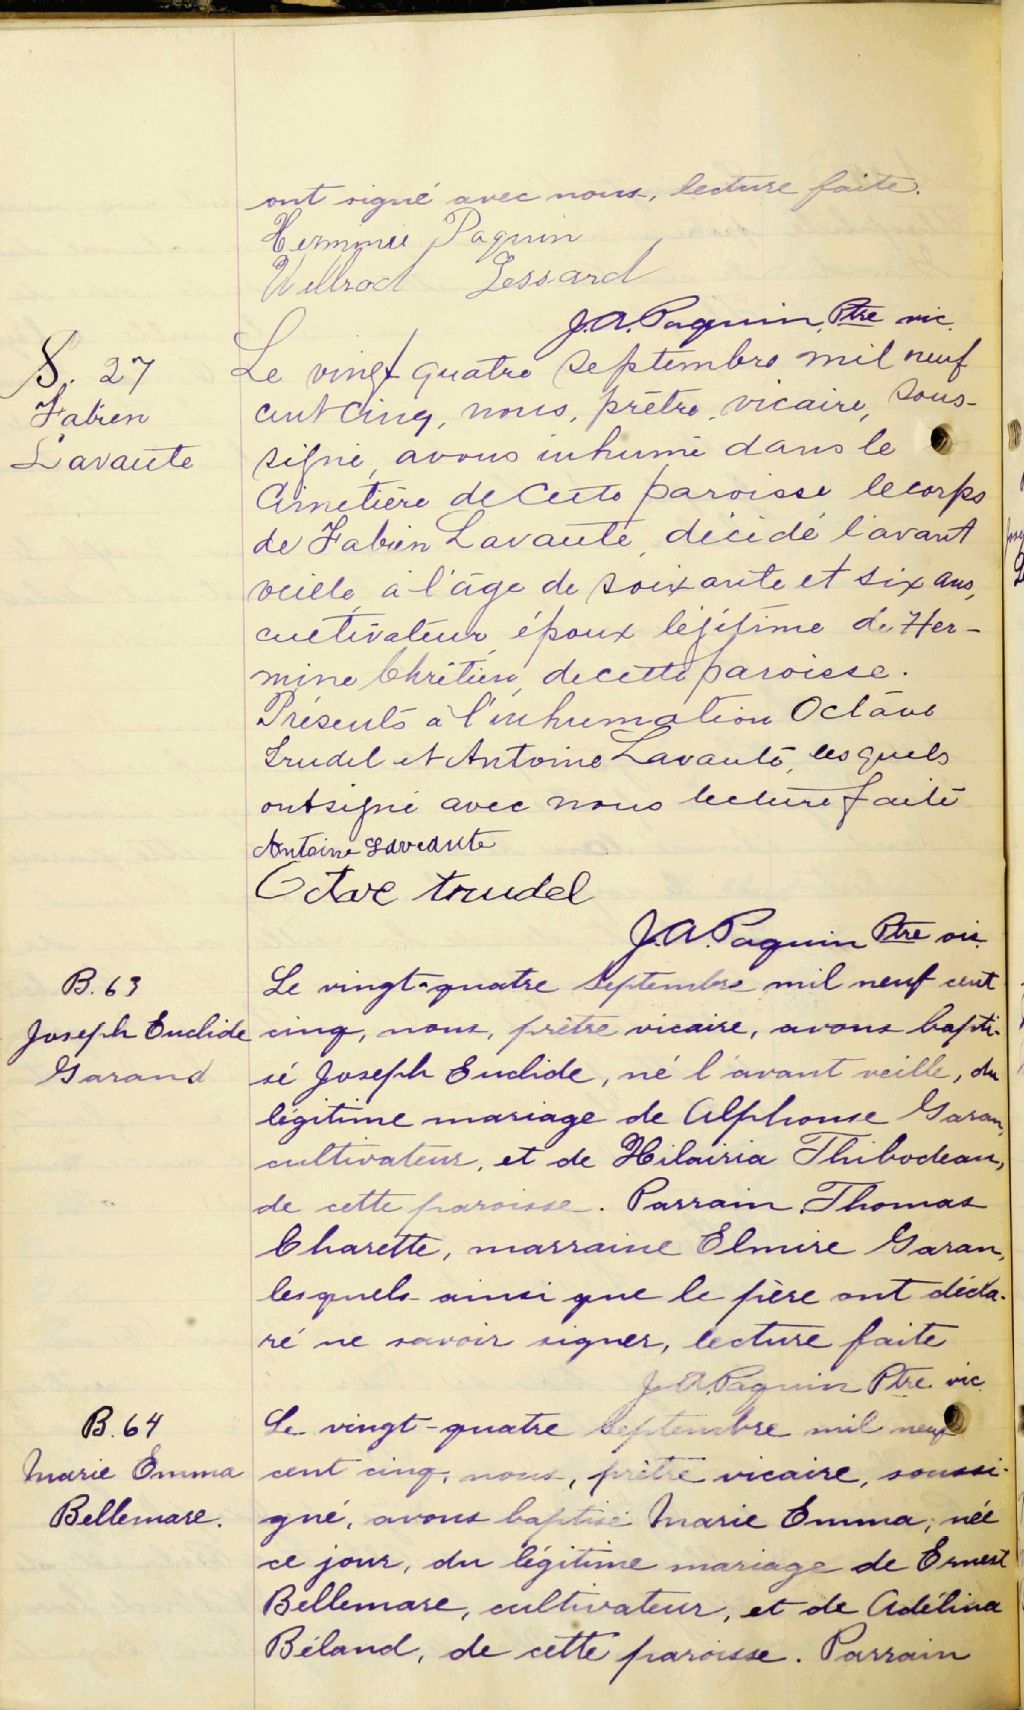 ont signé avec nous, lecture faite.
Herminie Paquin
Willrod Lessard
J.A. Paquin, Ptre vic.
S. 27
Fabien
Lavaute
Le vingt quatre septembre mil neuf
cent cinq, nous, prêtre, vicaire, sous-
signé, avons inhumé dans le
Cimetière de cette paroisse le corps
de Fabien Lavaute, décidé l'avant
veille, à l'âge de soixante et six ans,
cultivateur, époux légitime de Her-
mine Chrétien, de cette paroisse.
Présents à l'inhumation Octave
Trudel et Antoine Lavaute, lesquels
ont signé avec nous lecture faite
Antoine Laveaute
Octave trudel
J.A. Paquin Ptre vic.
B. 63
Joseph Euclide
Garand
Le vingt-quatre septembre mil neuf cent
cinq, nous, prêtre vicaire, avons bapti-
sé Joseph Euclide, né l'avant veille, du
légitime mariage de Alphonse Garan,
cultivateur, et de Hilairia Thibodeau,
de cette paroisse. Parrain, Thomas
Charette, marraine Elmire Garan,
lesquels ainsi que le père ont décla-
ré ne savoir signer, lecture faite
J.A. Paquin Ptre. vic
B. 64
Marie Emma
Bellemare.
Le vingt-quatre septembre mil neuf
cent cinq, nous, prêtre vicaire, soussi-
gné, avons baptisé Marie Emma, née
ce jour, du légitime mariage de Ernest
Bellemare, cultivateur, et de Adélina
Béland, de cette paroisse. Parrain